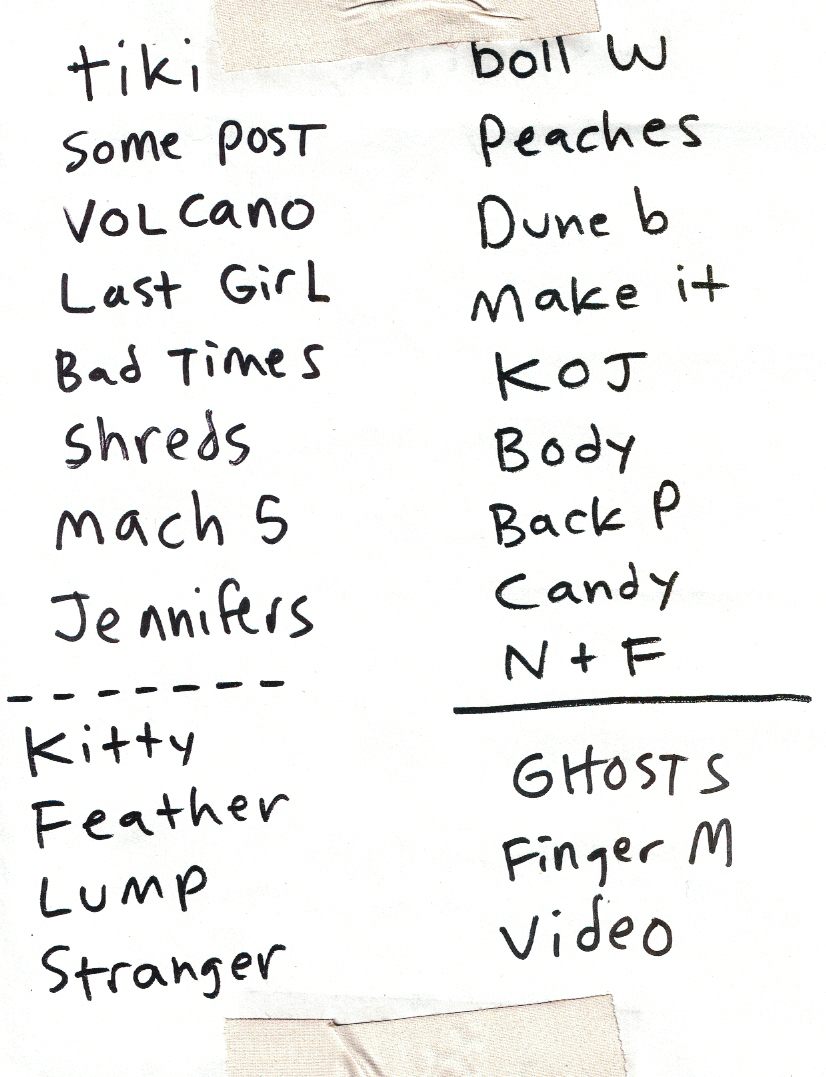 tiki
Some POST
VOLCANO
Last GirL
Bad Times
Shreds
Mach 5
Jennifers
Kitty
Feather
LUMP
Stranger
boll W
Peaches
Dune b
Make it
KOJ
Body
Back P
Candy
N + F
GHOSTS
Finger M
Video